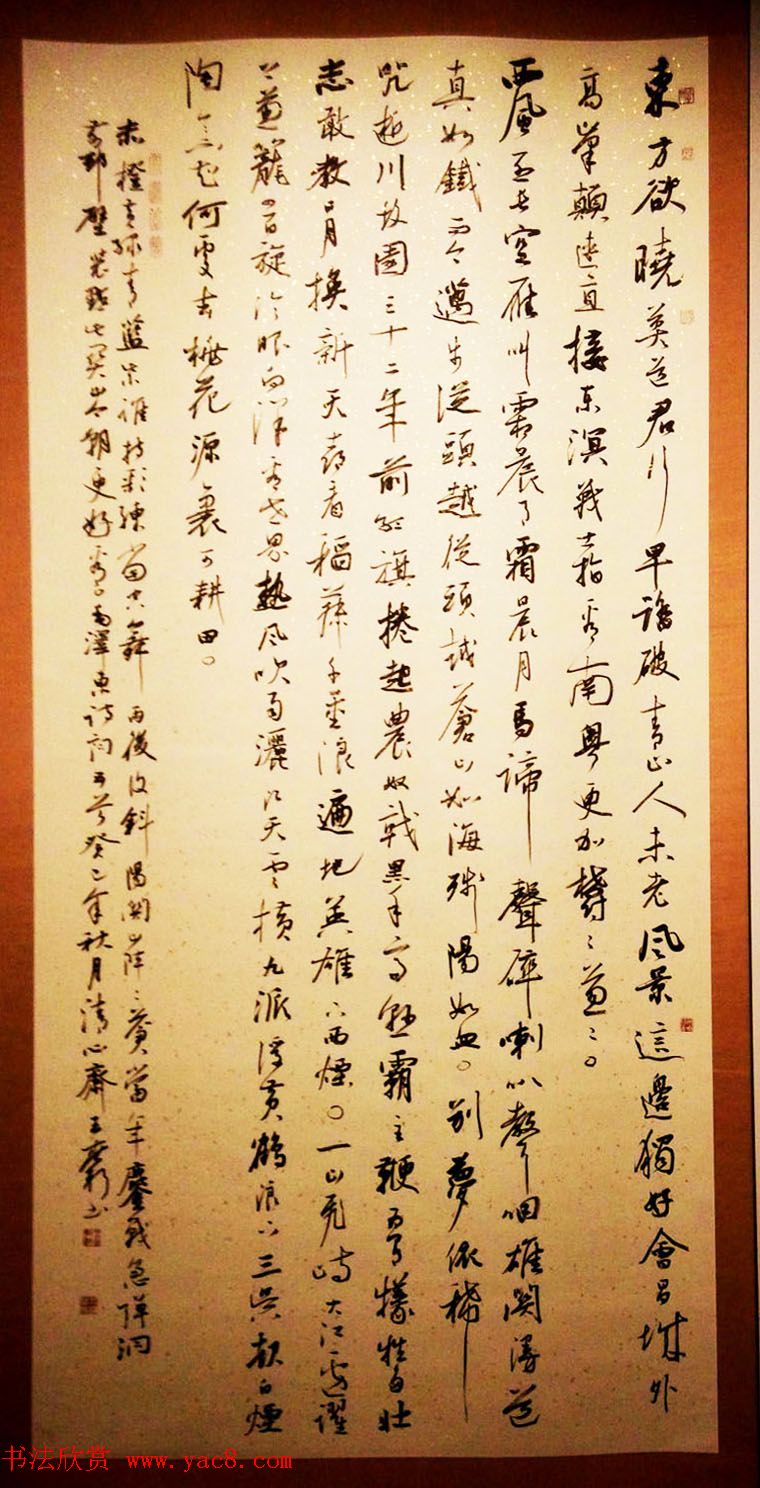 東方欲曉莫道君行早踏破青山人未老風景這邊獨好會昌城外
高峯顛連直接東溟戰士指看南粵更加鬱〻蔥〻。
西風烈長空雁叫霜晨月霜晨月馬蹄聲碎喇叭聲咽雄關漫道
真如鐵而今邁步從頭越從頭越蒼山如海殘陽如血。別夢依稀
咒逝川故園三十二年前紅旗捲起農奴戟黑手高懸霸主鞭為有犧牲多壯
志敢教日月換新天喜看稻菽千重浪遍地英雄下夕煙。一山飛峙大江邊躍
上蔥蘢四百旋冷眼向洋看世界熱風吹雨灑江天雲橫九派浮黃鶴浪下三吳起白煙
陶令不知何處去桃花源裏可耕田。
赤橙黃綠青藍紫誰持彩練當空舞雨後復斜陽關山陣〻蒼當年鏖戰急彈洞
前村壁裝點此關山今朝更好看毛澤東詩詞五首癸巳年秋月清心齋王
書
书法欣赏 www.yac8.com